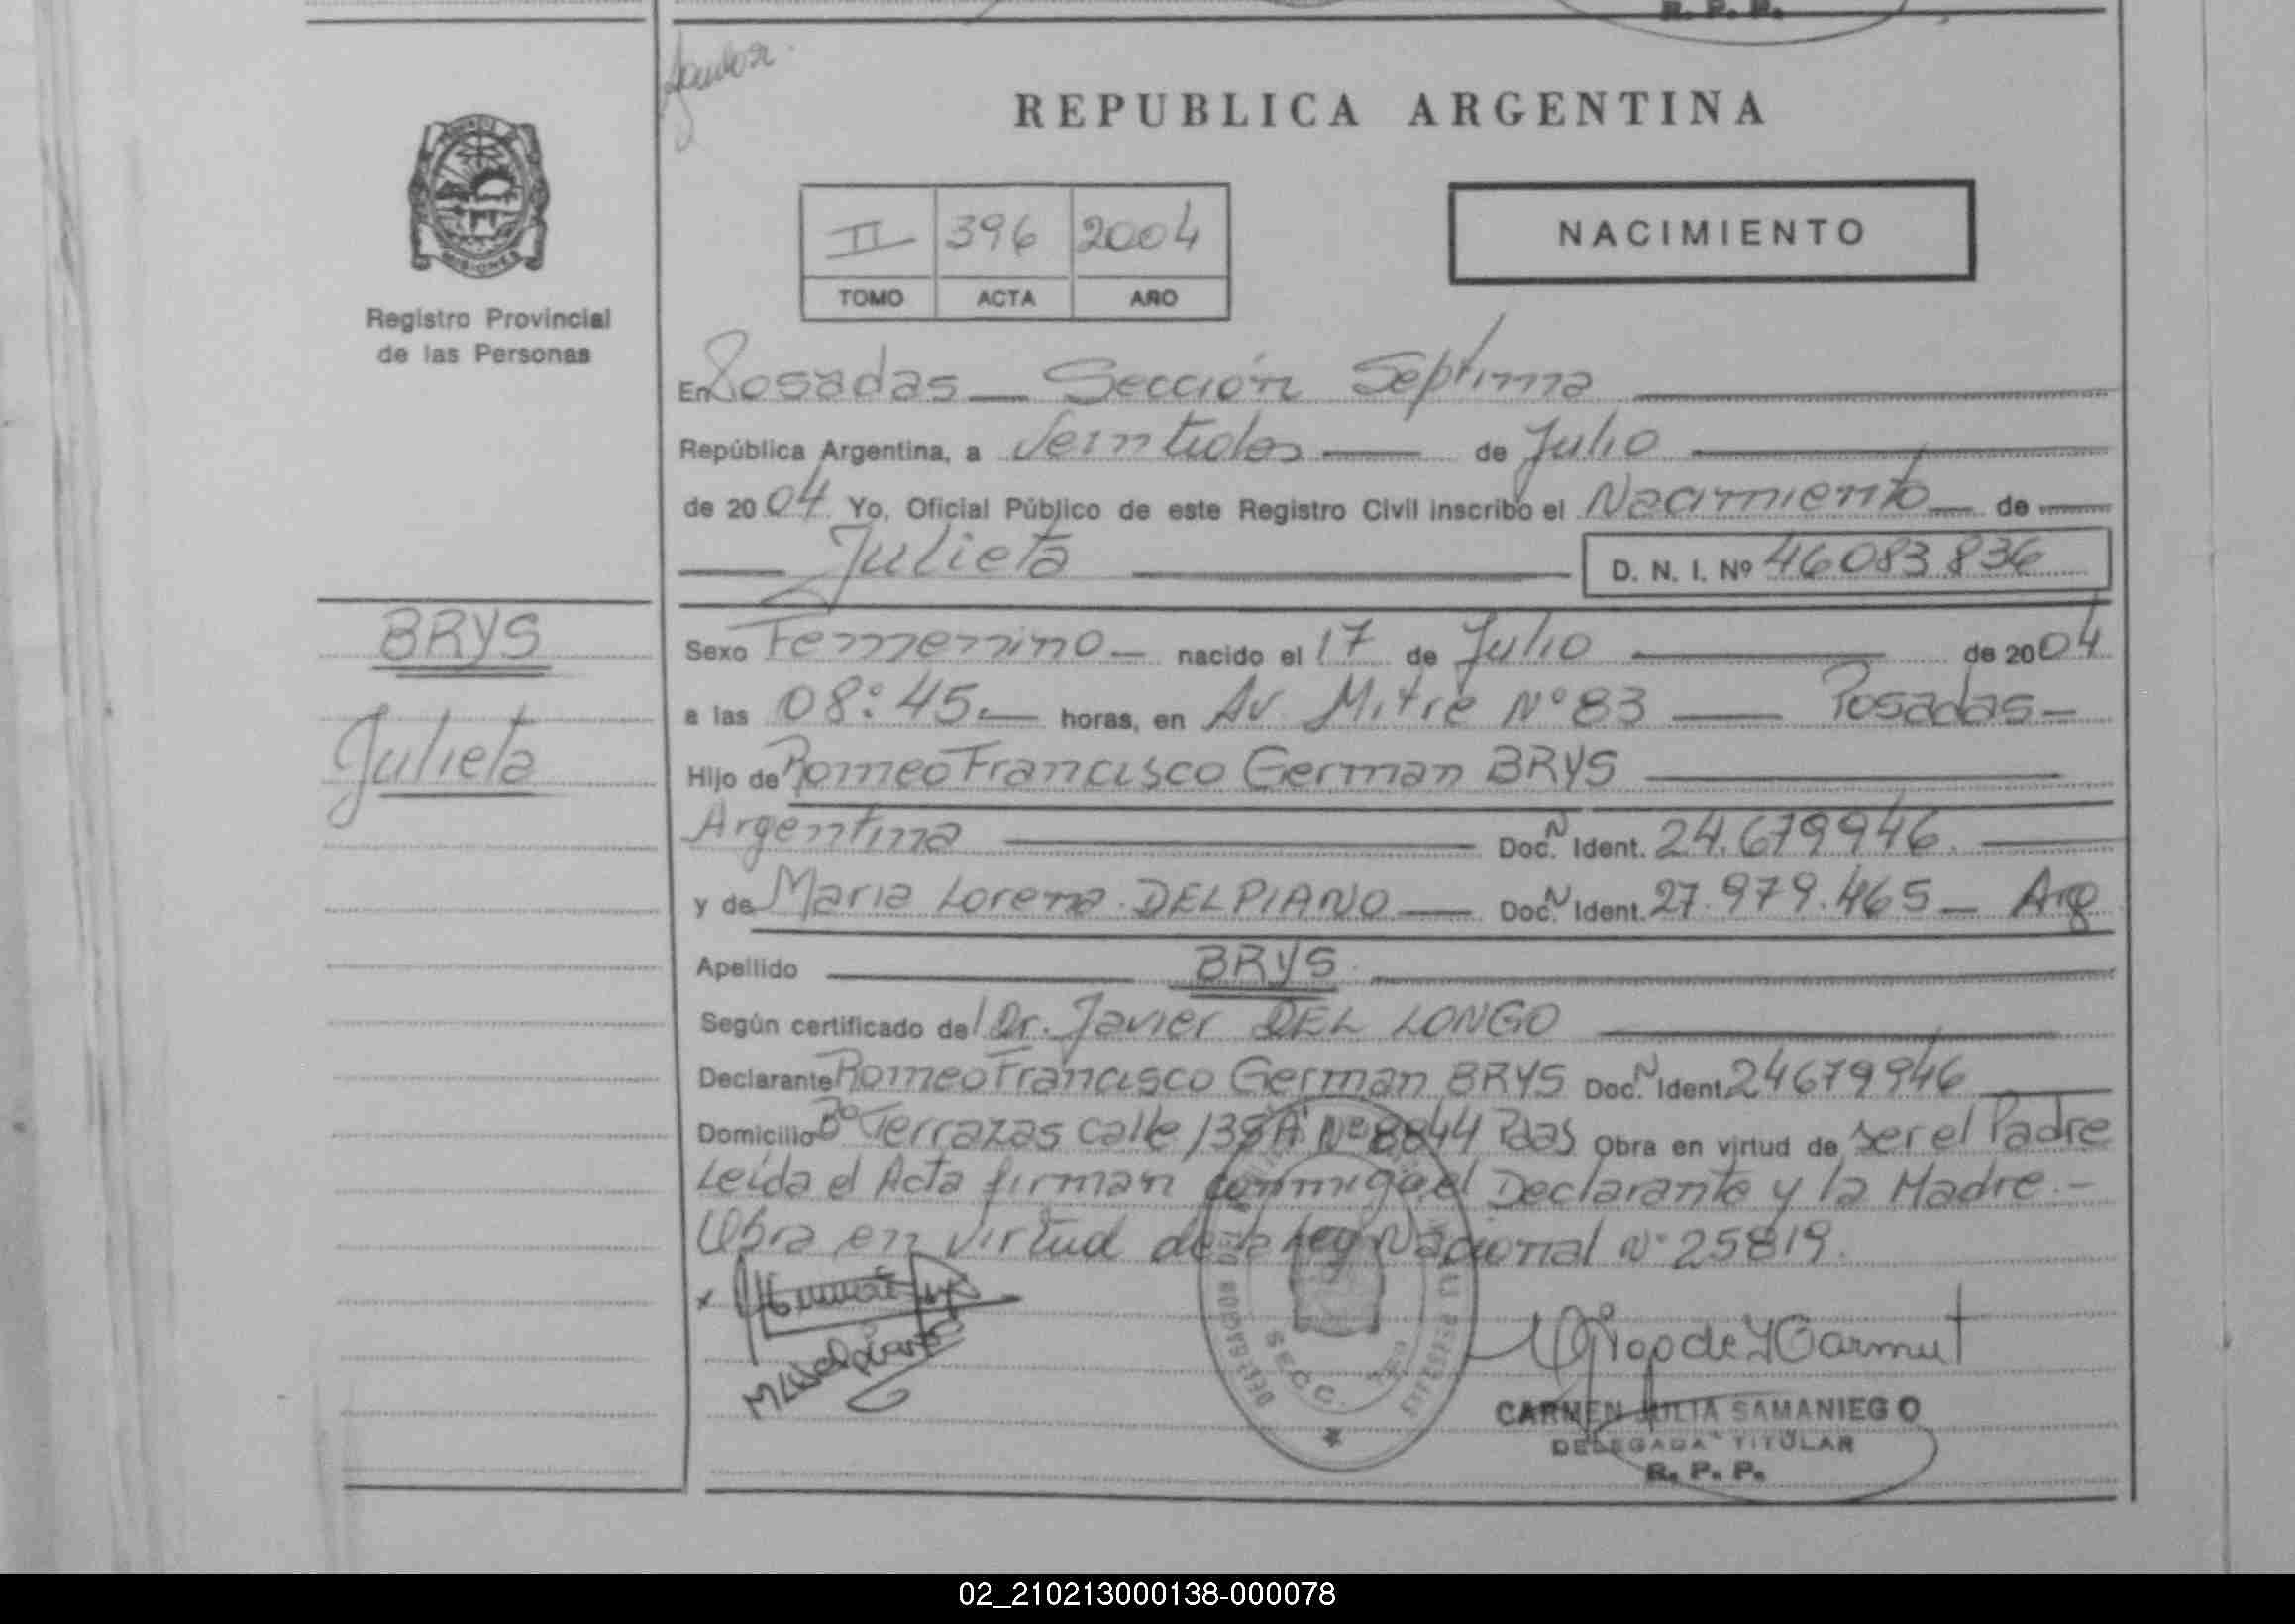 R. P. P.
REPUBLICA ARGENTINA
MISIONES
Registro Provincial
de las Personas
II 396 2004
TOMO ACTA AÑO
NACIMIENTO
En Posadas — Sección Septima
República Argentina, a Veintidos — de Julio
de 2004 Yo, Oficial Público de este Registro Civil inscribo el Nacimiento — de
Julieta D. N. I. Nº 46083836
BRYS
Julieta
Sexo Femenino — nacido el 17 de Julio de 2004
a las 08:45. — horas, en Av Mitre Nº 83 — Posadas —
Hijo de Romeo Francisco German BRYS
Argentina Doc. N Ident. 24.679946.
y de Maria Lorena DELPIANO — Doc. N Ident. 27.979.465 — Arg
Apellido BRYS
Según certificado del Dr. Javier DEL LONGO
Declarante Romeo Francisco German BRYS Doc. N Ident. 24679946
Domicilio Bº Terrazas calle 138A Nº 8844 Pdas Obra en virtud de ser el Padre
Leida el Acta firman conmigo el Declarante y la Madre.-
Obra en virtud de la Ley Nacional Nº 25819.
x
SECC.
CARMEN JULIA SAMANIEGO
DELEGADA TITULAR
R. P. P.
02_210213000138-000078